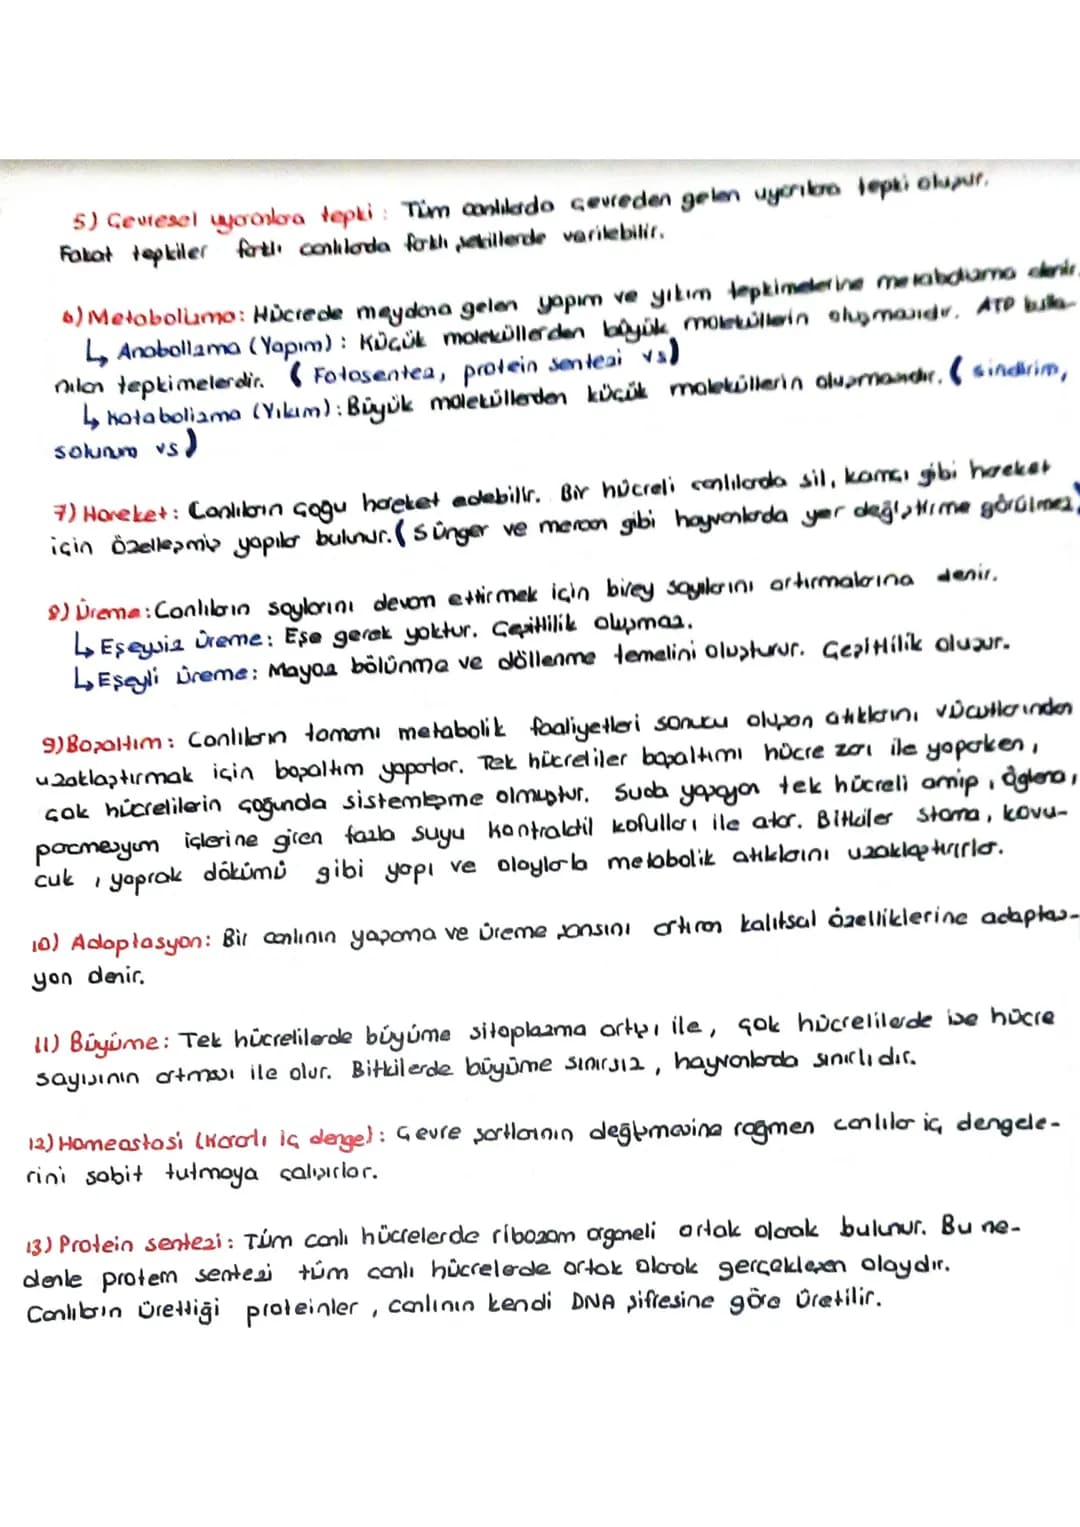 5) Çevresel uyaranlara tepki: Tüm canlılarda çevreden gelen uyarılara tepki oluşur.
Fakat tepkiler farklı canlılarda farklı şekillerde verilebilir.
6) Metabolizma: Hücrede meydana gelen yapım ve yıkım tepkimelerine metabolizma denir.
↳ Anabolizma (Yapım): Küçük moleküllerden büyük moleküllerin oluşmasıdır. ATP kulla-
nılan tepkimelerdir. (Fotosentez, protein sentezi vs)
↳ Katabolizma (Yıkım): Büyük moleküllerden küçük moleküllerin oluşmasıdır. (sindirim,
solunum vs)
7) Hareket: Canlıların çoğu hareket edebilir. Bir hücreli canlılarda sil, kamçı gibi hareket
için özelleşmiş yapılar bulunur. (Sünger ve mercan gibi hayvanlarda yer değiştirme görülmez)
8) Üreme: Canlıların soylarını devam ettirmek için birey sayılarını artırmalarına denir.
↳ Eşeysiz üreme: Eşe gerek yoktur. Çeşitlilik oluşmaz.
↳ Eşeyli üreme: Mayoz bölünme ve döllenme temelini oluşturur. Çeşitlilik oluşur.
9) Boşaltım: Canlıların tamamı metabolik faaliyetleri sonucu oluşan atıklarını vücutlarından
uzaklaştırmak için boşaltım yaparlar. Tek hücreliler boşaltımı hücre zarı ile yaparken,
çok hücrelilerin çoğunda sistemleşme olmuştur. Suda yaşayan tek hücreli amip, öglena,
paramesyum içlerine giren fazla suyu kontraktil kofulları ile atar. Bitkiler stoma, kovu-
cuk, yaprak dökümü gibi yapı ve olaylarla metabolik atıklarını uzaklaştırırlar.
10) Adaptasyon: Bir canlının yaşama ve üreme şansını artıran kalıtsal özelliklerine adaptas-
yon denir.
11) Büyüme: Tek hücrelilerde büyüme sitoplazma artışı ile, çok hücrelilerde ise hücre
sayısının artması ile olur. Bitkilerde büyüme sınırsız, hayvanlarda sınırlıdır.
12) Homeostasi (Kararlı iç denge): Çevre şartlarının değişmesine rağmen canlılar iç dengele-
rini sabit tutmaya çalışırlar.
13) Protein sentezi: Tüm canlı hücrelerde ribozom organeli ortak olarak bulunur. Bu ne-
denle protein sentezi tüm canlı hücrelerde ortak olarak gerçekleşen olaydır.
Canlıların ürettiği proteinler, canlının kendi DNA şifresine göre üretilir.